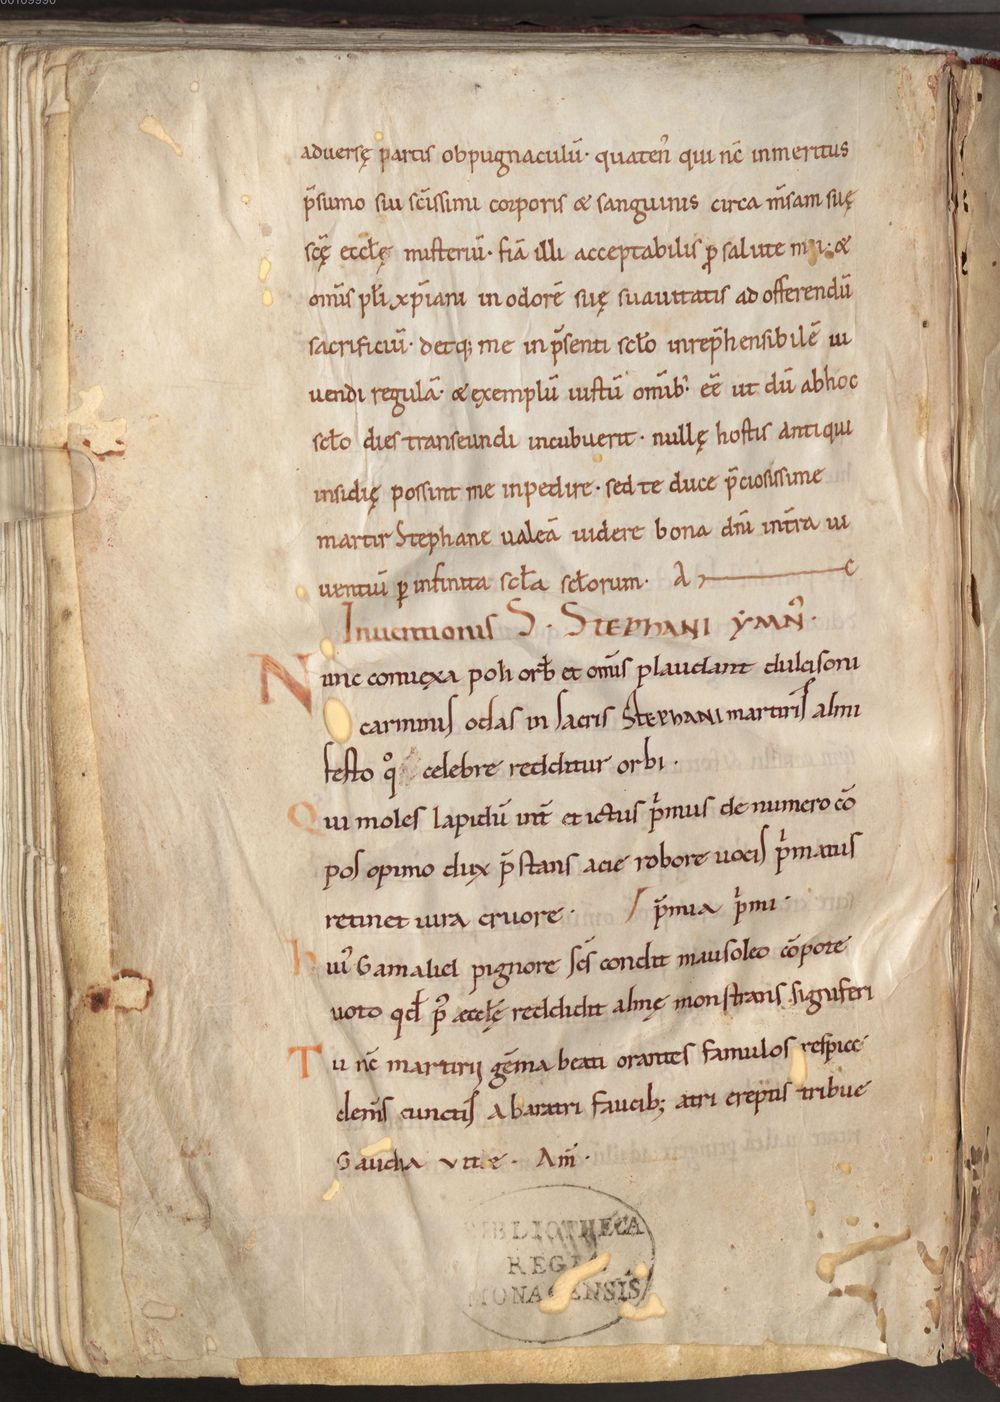 aduersę partis obpugnaculū· quaten̄ qui nc̄ inmeritus
p̄sumo sui sc̄issimi corporis & sanguinis circa m̄sam suę
sc̄ę eccłę misteriū· fiā illi acceptabilis ꝓ salute & 
om̄is płi xp̄iani in odorē suę suauitatis ad offerendū
sacrificiū· detq; me in p̄senti scło inrep̄hensibilē ui
uendi regulā· & exemplū iustū om̄ib; eē̄ ut dū ab hoc
scło dies transeundi incubuerit· nullę hostis antiqui
insidię possint me inpedire· sed te duce p̄ciosissime
martir Stephane ualeā uidere bona dn̄i int̄ra ui
uentiū ꝑ infinita scła scłorum· A
Inuentionis S· STEPHANI YMN̄·
Nunc conuexa poli orb̄ et om̄is plaudant dulcisoni
carminis odas in sacris STEPHANI martiris almi
festo qͦ celebre redditur orbi·
Qui moles lapidū int̄ et ictus p̄mus de numero cō
pos opimo dux p̄stans acie robore uocis p̄matus
retinet iura cruore· p̄mia p̄mi·
hui᾽ Gamaliel pignore sc̄s condit mausoleo cōpote
uoto qđ pꝰ æccłę reddidit almę monstrans signiferi
Tu nc̄ martirij gēma beati orantes famulos respice
clem̄s cunctis a baratri faucib; atri ereptis tribue
Gaudia vitę· Am̄·
BIBLIOTHECA
REGIA
MONACENSIS